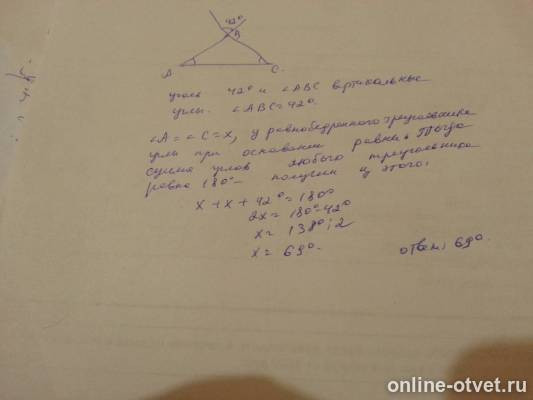 42°
B
A
C
угол 42° и ∠ABC вертикальные
углы. ∠ABC=42°.
∠A=∠C=x, у равнобедренного треугольника
углы при основании равны. Тогда
сумма углов любого треугольника
равна 180° получим у этого:
x+x+42°=180°
2x=180°-42°
x=138°:2
x=69°.
ответ: 69°.
online-otvet.ru